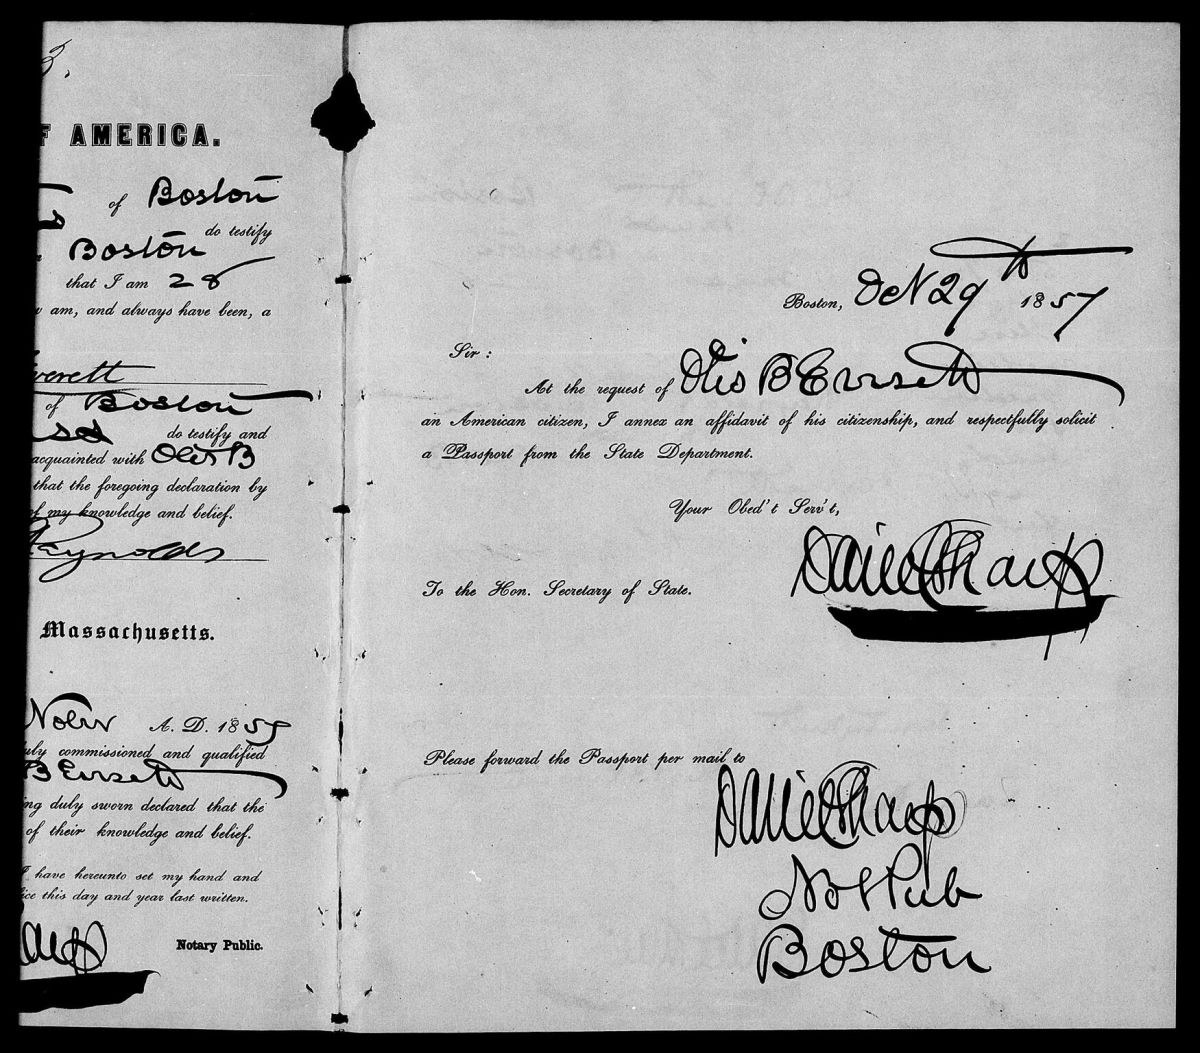 3.
F AMERICA.
of Boston
do testify
Boston
that I am 28
w am, and always have been, a
verett
of Boston
do testify and
acquainted with Otis B
that the foregoing declaration by
of my knowledge and belief.
Reynolds
Massachusetts.
Novr A. D. 1857
uly commissioned and qualified
B Everett
ing duly sworn declared that the
of their knowledge and belief.
I have hereunto set my hand and
fice this day and year last written.
Notary Public.
Boston, Oct 29th 1857
Sir:
At the request of Otis B Everett
an American citizen, I annex an affidavit of his citizenship, and respectfully solicit
a Passport from the State Department.
Your Obed't Serv't,
Daniel Sharp
To the Hon. Secretary of State.
Please forward the Passport per mail to
Daniel Sharp
Not Pub
Boston